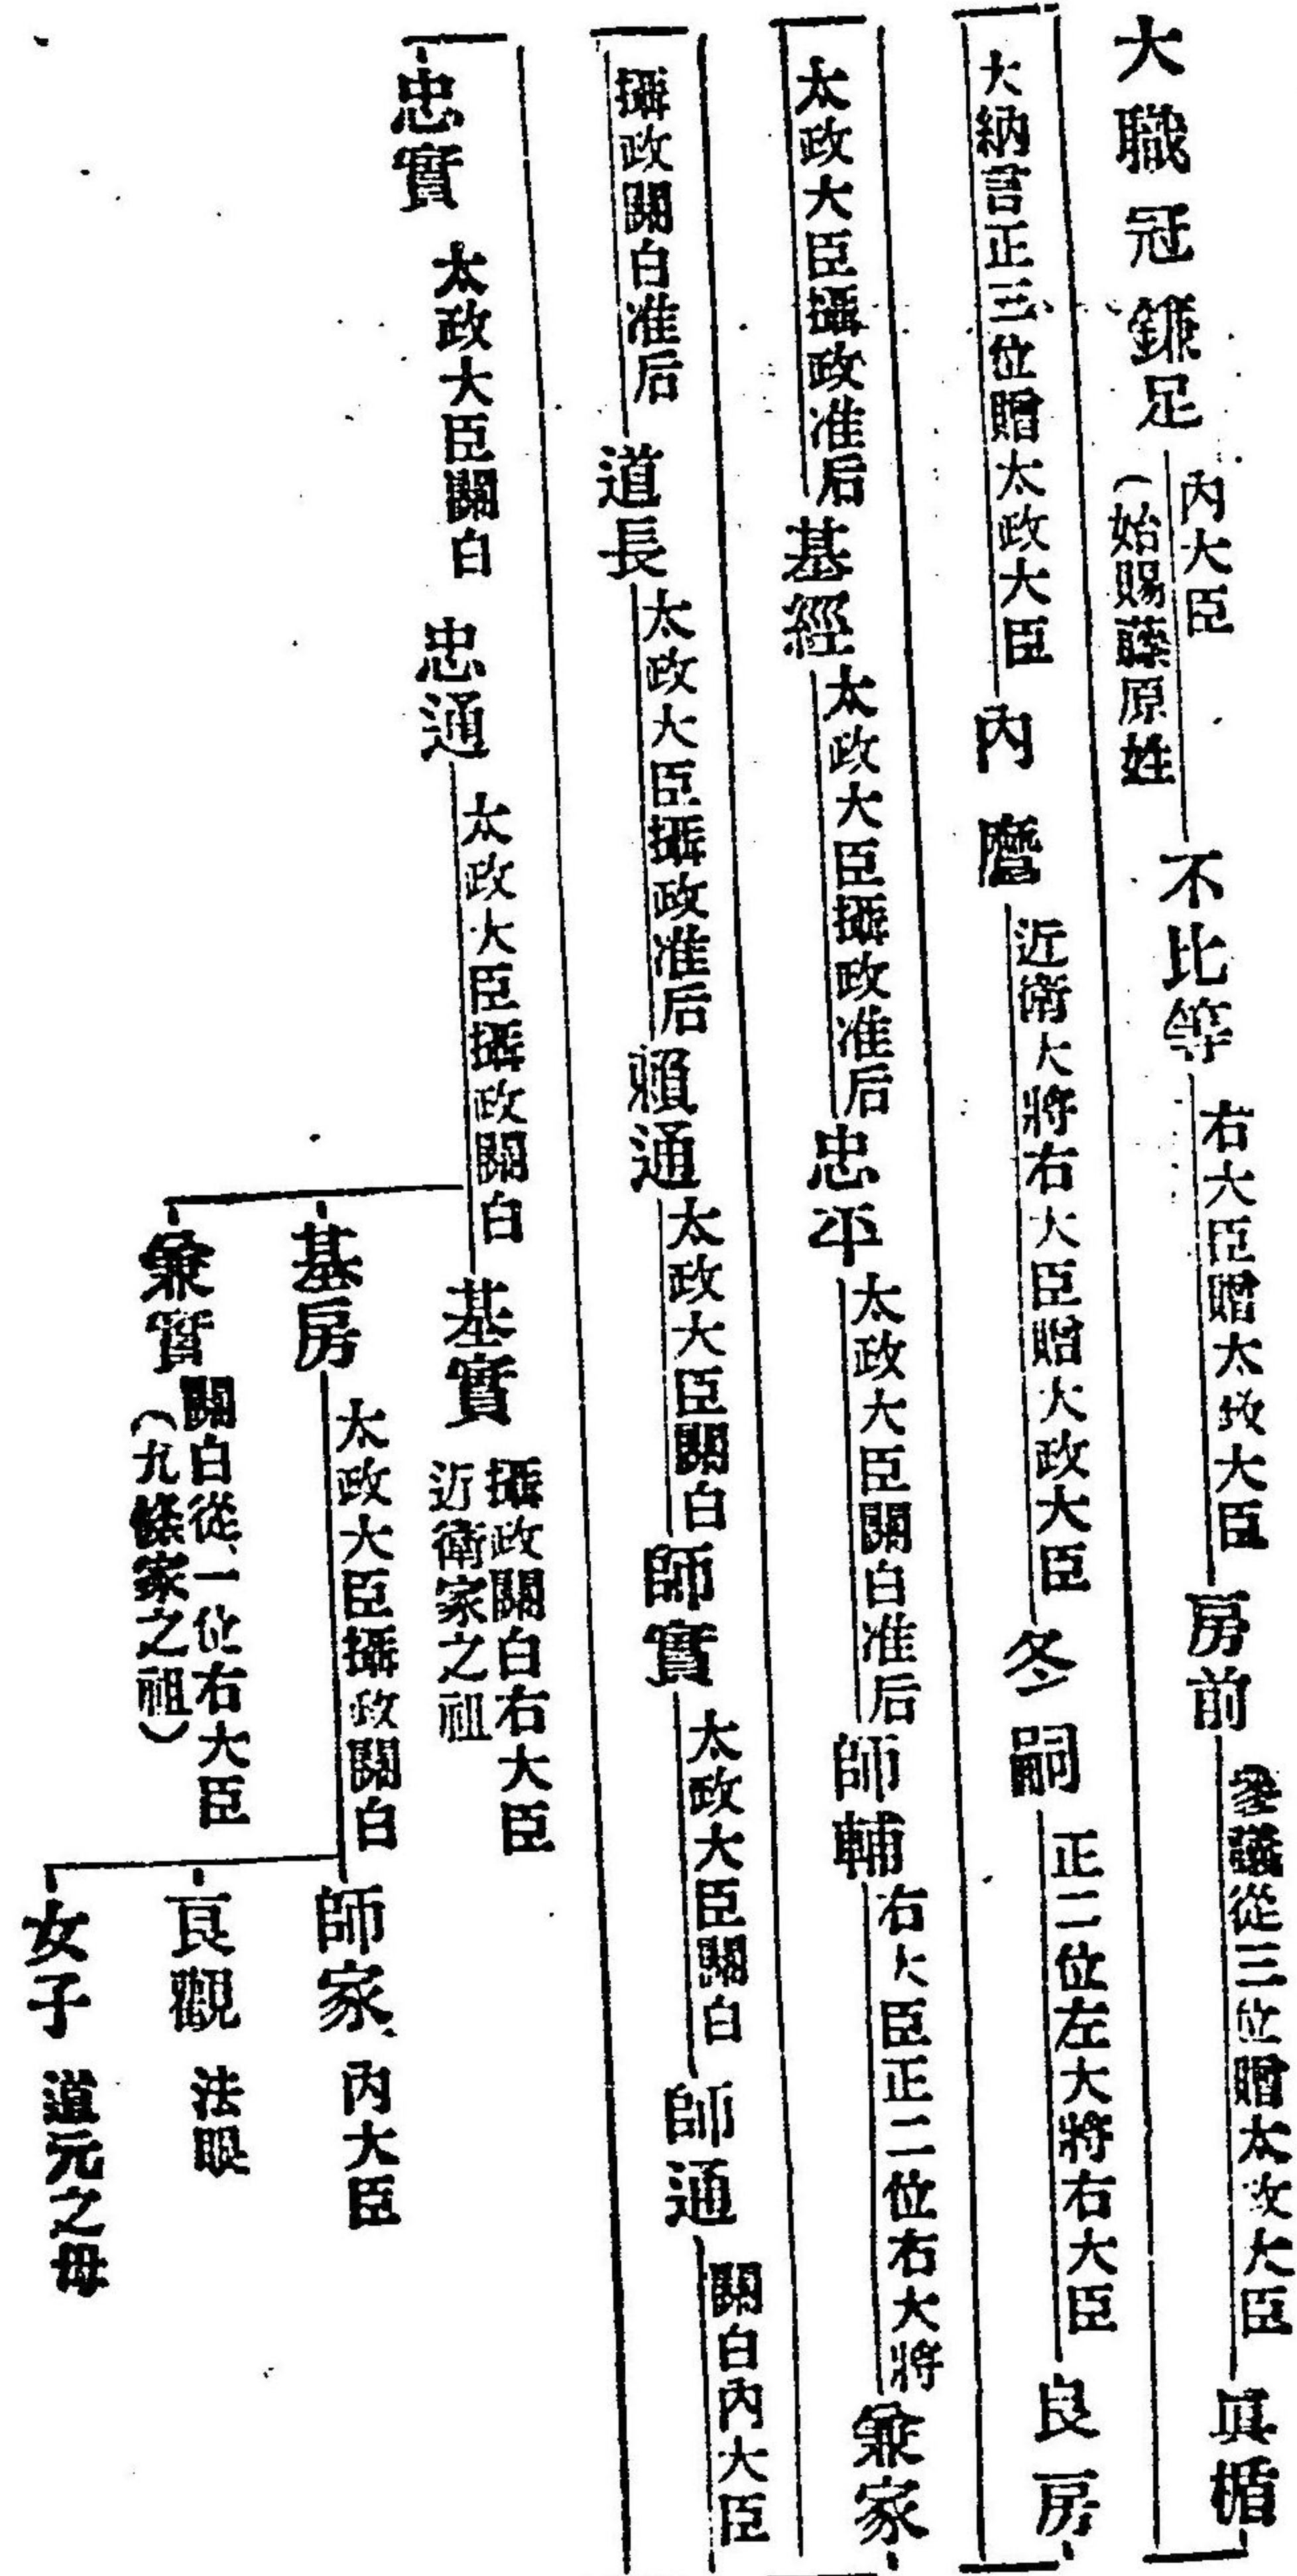 大職冠鎌足
內大臣
(始賜藤原姓
不比等
右大臣贈太政大臣
房前
參議從三位贈太政大臣
眞楯
大納言正三位贈太政大臣
內麿
近衛大將右大臣贈大政大臣
冬嗣
正二位左大將右大臣
良房
太政大臣攝政准后
基經
太政大臣攝政准后
忠平
太政大臣關白准后
師輔
右大臣正二位右大將
兼家
攝政關白准后
道長
太政大臣攝政准后
賴通
太政大臣關白
師實
太政大臣關白
師通
關白內大臣
忠實
太政大臣關白
忠通
太政大臣攝政關白
基實
攝政關白右大臣
近衛家之祖
基房
太政大臣攝政關白
兼實
關白從一位右大臣
(九條家之祖)
師家
內大臣
良觀
法眼
女子
道元之母